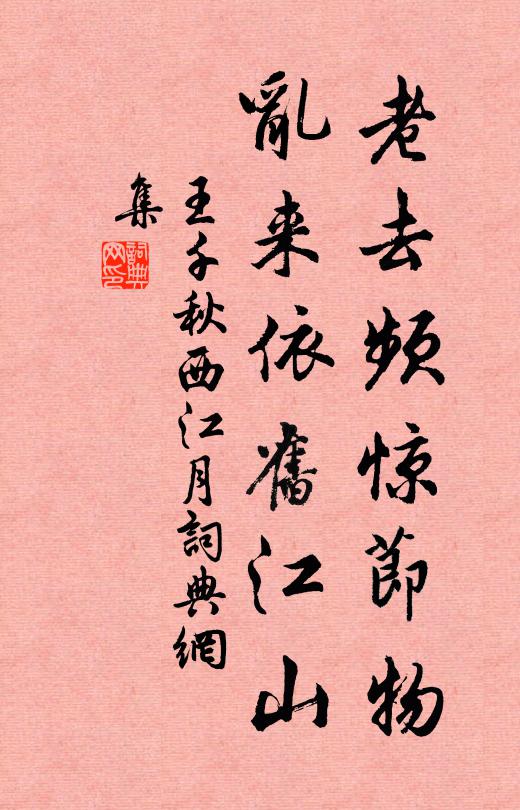 老去频惊節物
亂来依舊江山
王千秋西江月詞典網
集
詞典
网印